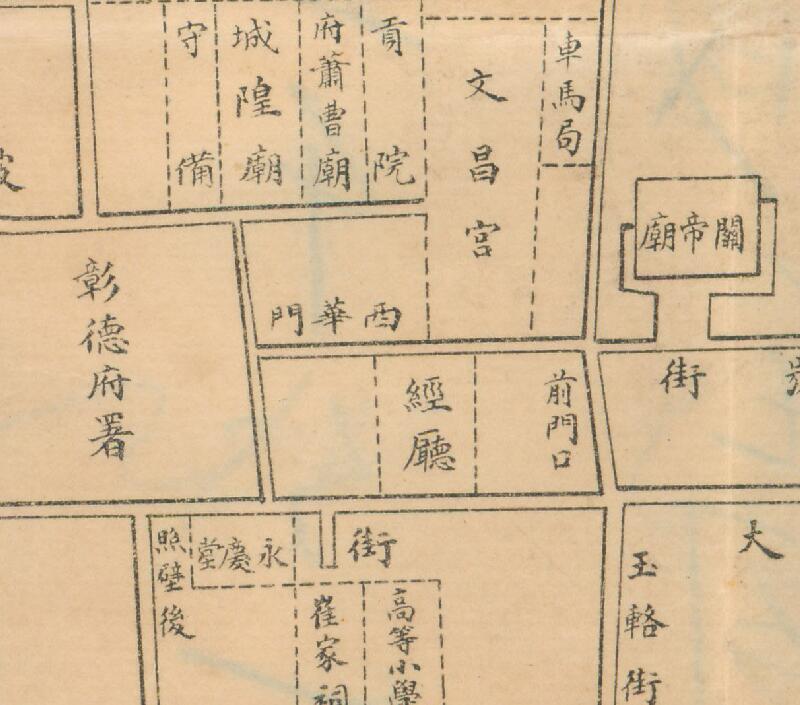 車馬局
文昌宮
貢院
府蕭曹廟
城隍廟
守備
關帝廟
西華門
彰德府署
街
前門口
經廳
大
玉輅街
街
永慶堂
照壁後
高等小學
崔家祠